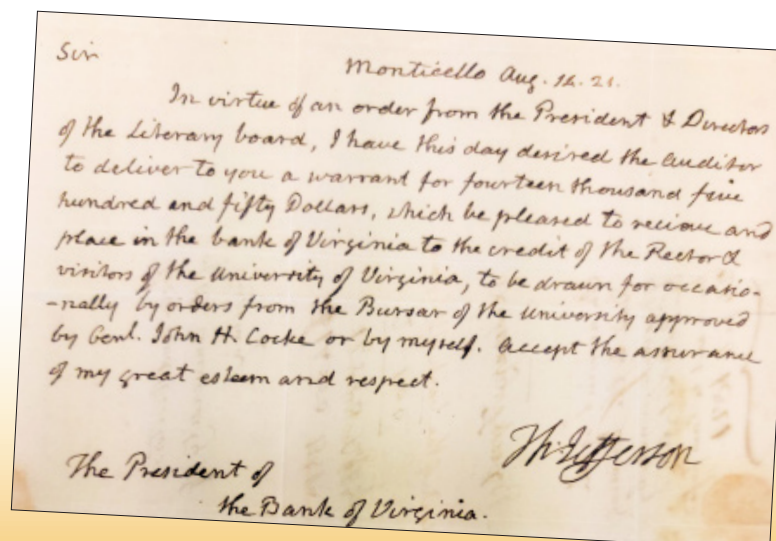 Sir
Monticello Aug. 14. 21.
In virtue of an order from the President & Directors
of the Literary board, I have this day desired the Auditor
to deliver to you a warrant for fourteen thousand five
hundred and fifty Dollars, which be pleased to recieve and
place in the bank of Virginia to the credit of the Rector &
visitors of the University of Virginia, to be drawn for occasio-
-nally by orders from the Bursar of the University approved
by Genl. John H. Cocke or by myself. Accept the assurance
of my great esteem and respect.
Th: Jefferson
The President of
the Bank of Virginia.